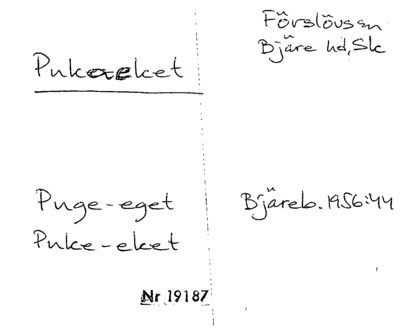 Förslövs sn
Bjäre hd, Sk
Pukaeket
Puge-eget
Puke-eket
Bjäreb. 1956:44
Nr 19187